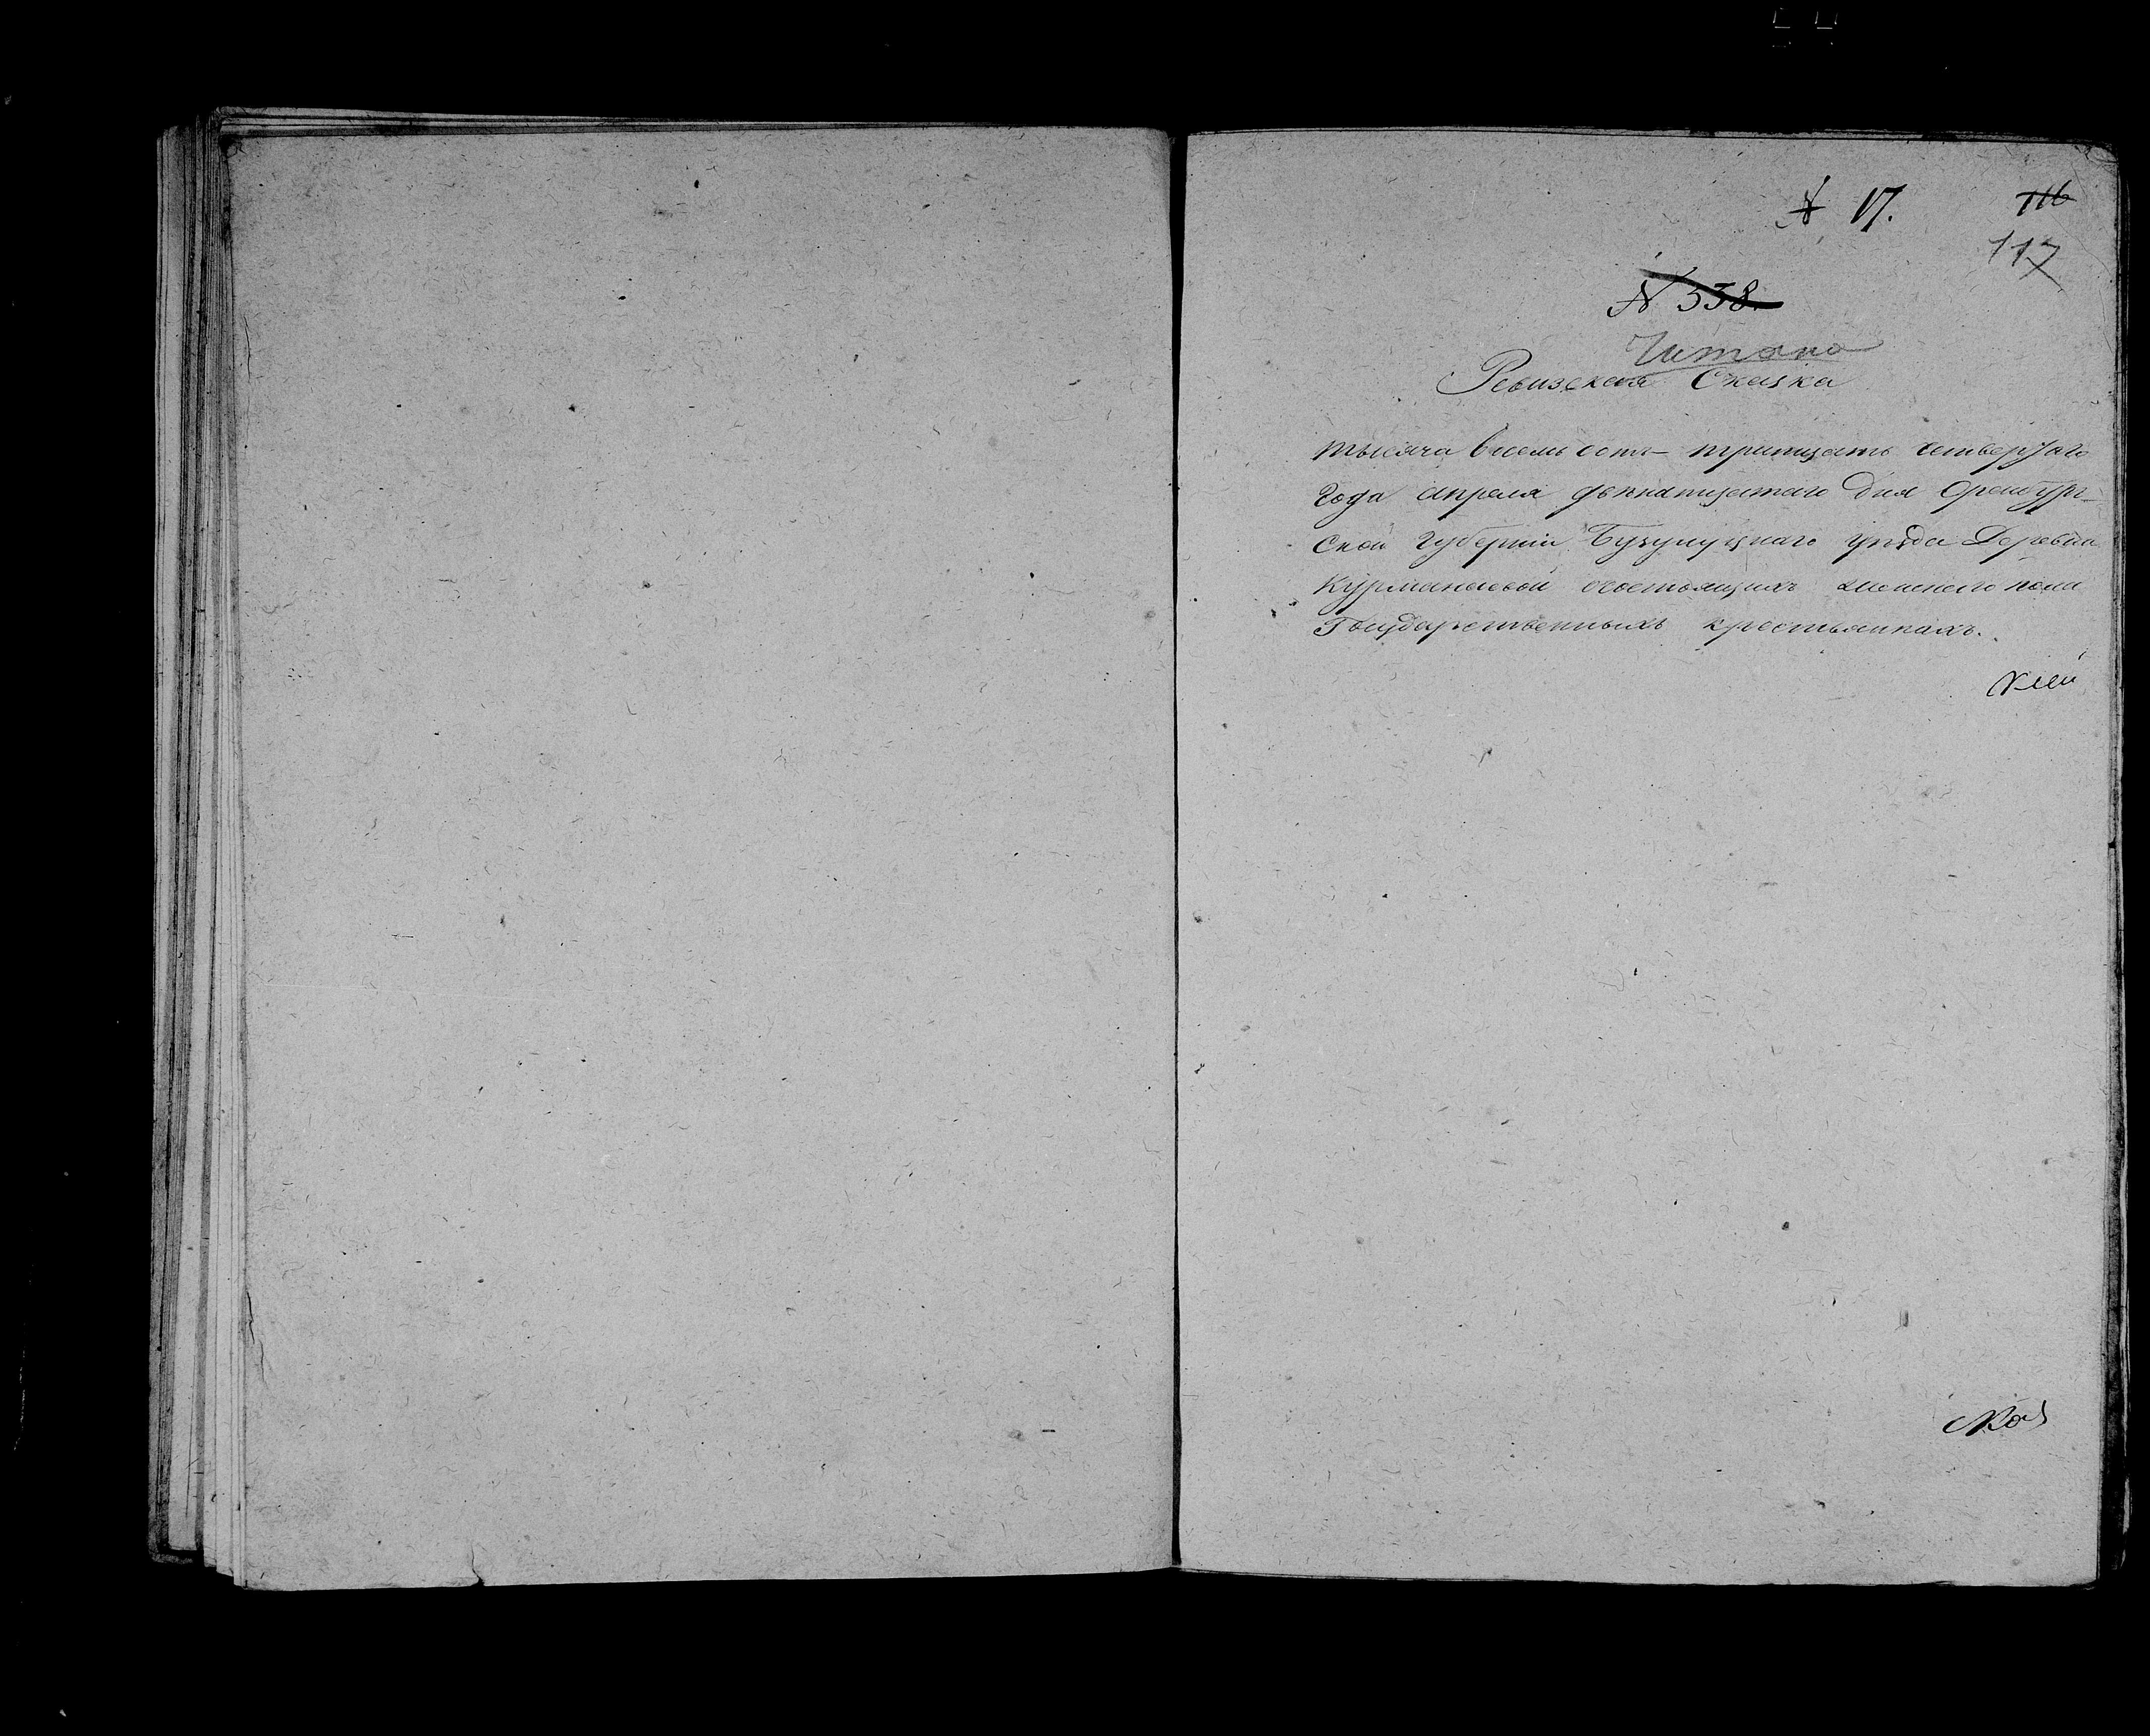 № 17.
116
117
№ 338.
Читано
Ревизская Сказка
тысяча восемь сотъ тритцать четвертаго
Года апреля двѣнатцатаго дня Оренбург-
Ской Губерніи Бузулуцкаго уѣзда Деревни
Курманаевой о состоящихъ женскаго пола
Государственныхъ крестьянкахъ.